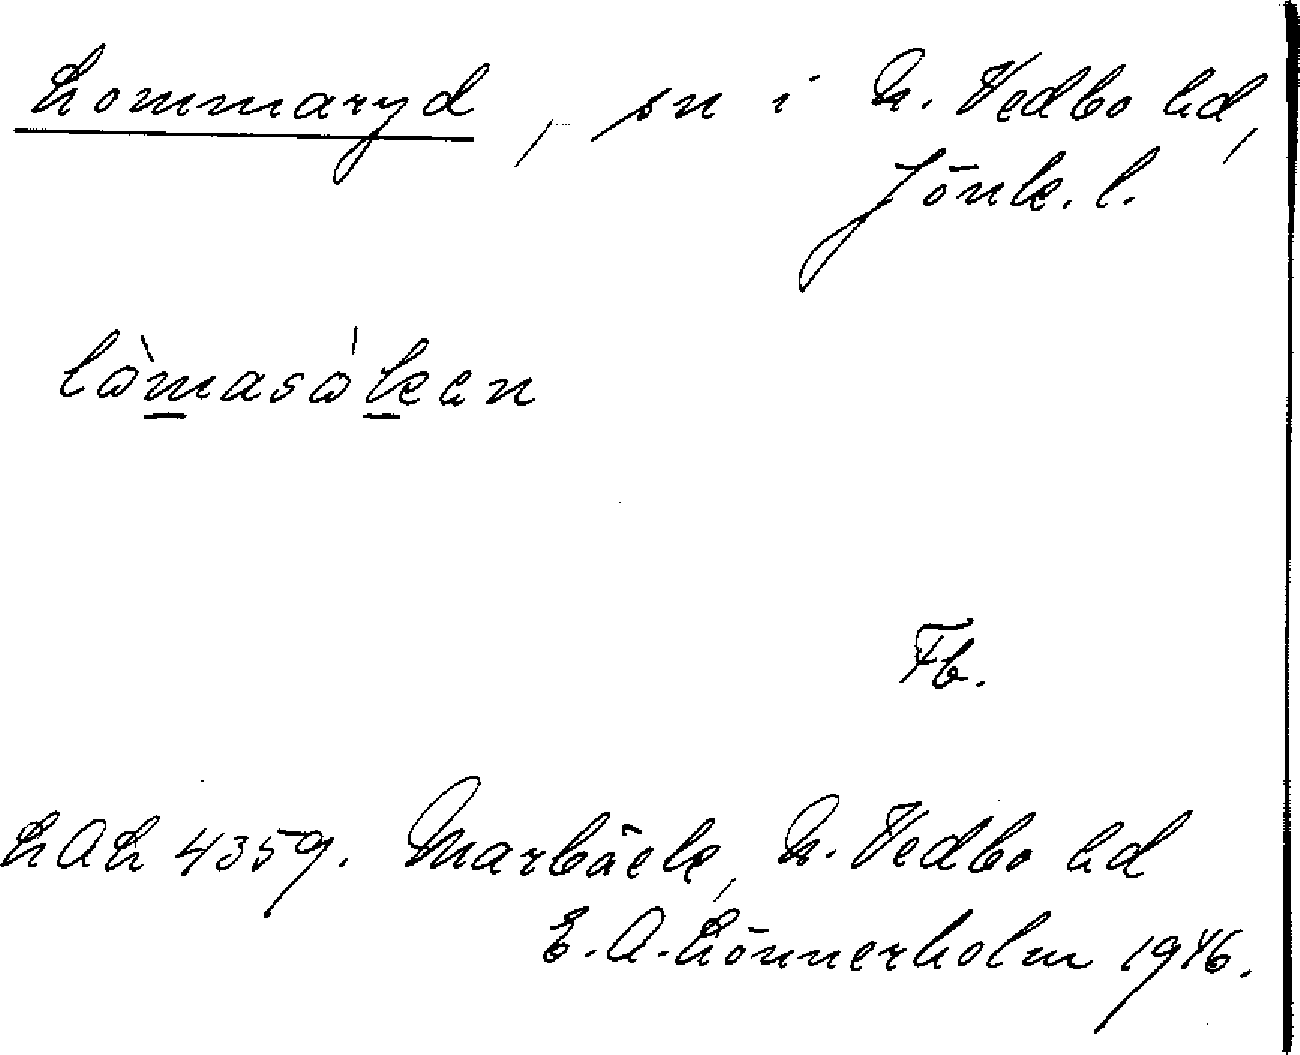 Lommaryd, sn i N. Vedbo hd,
Jönk. l.
lòmasòkan
Fb.
LAL 4359. Marbäck, N. Vedbo hd
E. A. Lönnerholm 1946.